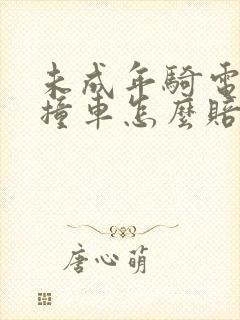 未成年騎電
撞車怎麼賠
唐心萌